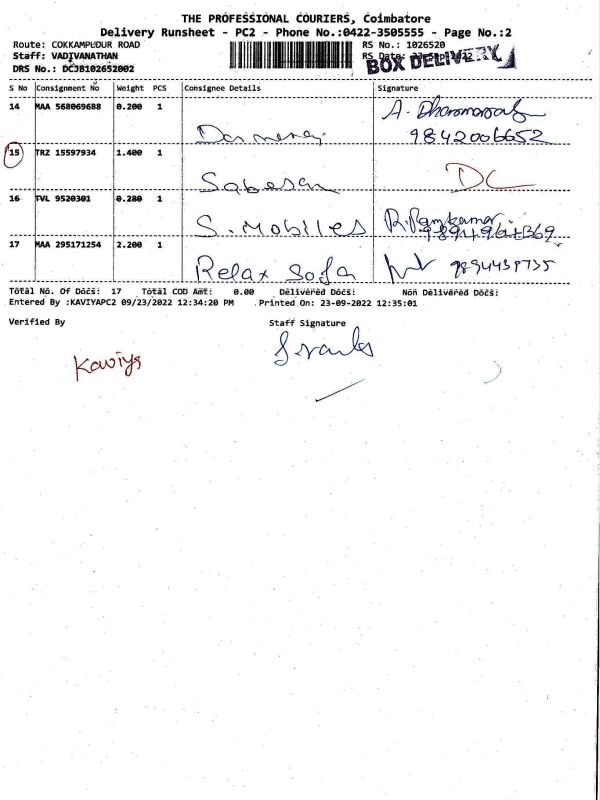 THE PROFESSIONAL COURIERS, Coimbatore
Delivery Runsheet - PC2 - Phone No.:0422-3505555 - Page No.:2
Route: COKKAMPUDUR ROAD
RS No.: 1026520
Staff: VADIVANATHAN
RS Date:
BOX DELIVERY
DRS No.: DCJB102652002
S No Consignment No Weight PCS Consignee Details Signature
14 MAA 568069688 0.200 1
9842006652
15 TRZ 15597934 1.400 1 Sabesan DC
16 TVL 9520301 0.280 1 S. Mobiles R. Ramkumar
17 MAA 295171254 2.200 1 Relax Sofa
Total No. Of Docs: 17 Total COD Amt: 0.00 Delivered Docs: Non Delivered Docs:
Entered By :KAVIYAPC2 09/23/2022 12:34:20 PM Printed On: 23-09-2022 12:35:01
Verified By Staff Signature
Kaviya